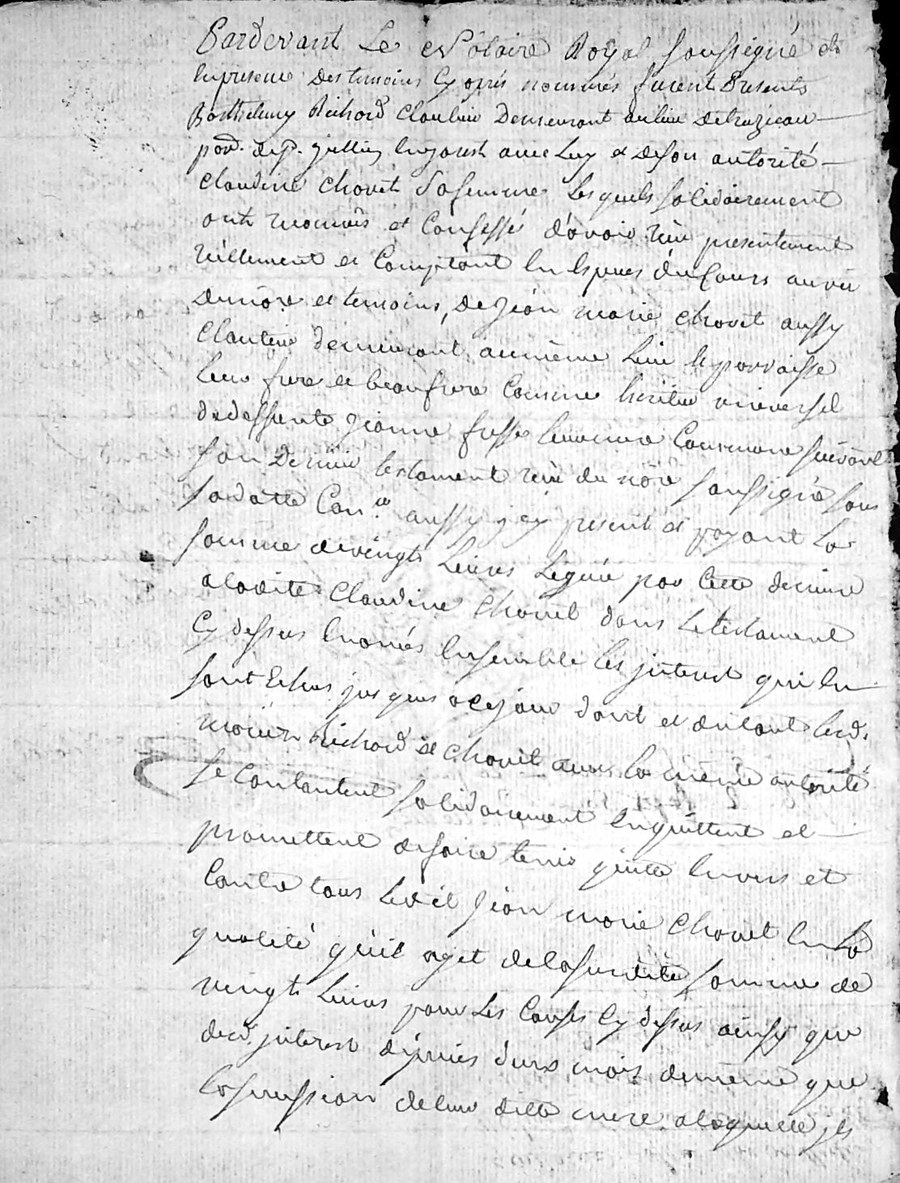 Pardevant Le Notaire Royal soussigné et
en presence des temoins cy après nommés furent Presents
Barthelemy Richord Demeurant au lieu
par. de st. jullien avec luy et de son autorité
Claudine Chovet sa femme Lesquels solidairement
ont reconnus et Confessé d'avoir reçu presentement
réellement et Comptant en Especes du Cours au vû
du nore et temoins, de Jean marie Chovet aussy
demeurant au même lieu et parroisse
leur frere et beaufrere Comme heritier universel
de deffunte Jeanne leur mere Commune suivant
son dernier testament reçu du nore soussigné sous
sa datte Con.lé aussy icy present et payant La
somme de vingt Livres Leguée par Cette derniere
a ladite Claudine Chovet dans le testament
Cy dessus énoncé Ensemble les jnterest qui en
sont Echus jusques a ce jour dont et du tout lesd.
mariés Richord et Chovet sous la même autorité
se Contantent solidairement en quittent et
promettent de faire tenir quitte Envers et
Contre tous Ledit Jean marie Chovet en la
qualité qu'il agit de la susditte somme de
vingt Livres pour Les Causes Cy dessus ainsy que
desd. jnterest depuis deux mois de même que
la succession de leur ditte mere a laquelle jls